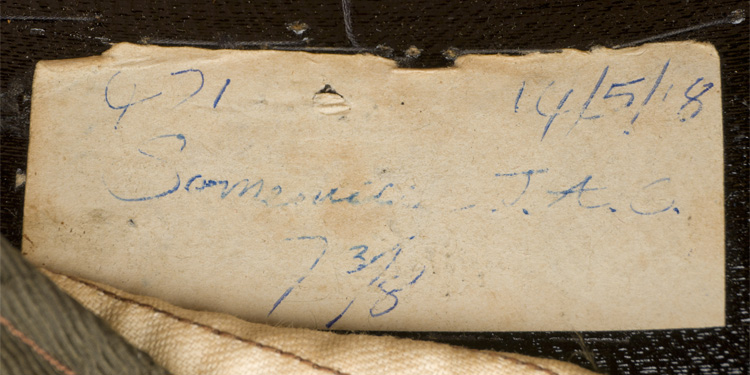 471 14/5/18
Somerville J.A.C.
7 3/8